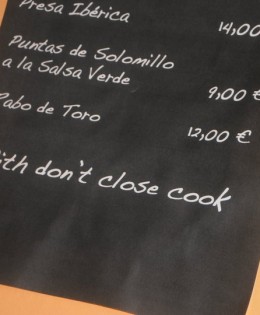 Presa Ibérica 14,00
Puntas de Solomillo
a la Salsa Verde 9,00 €
Rabo de Toro 12,00 €
ith don't close cook